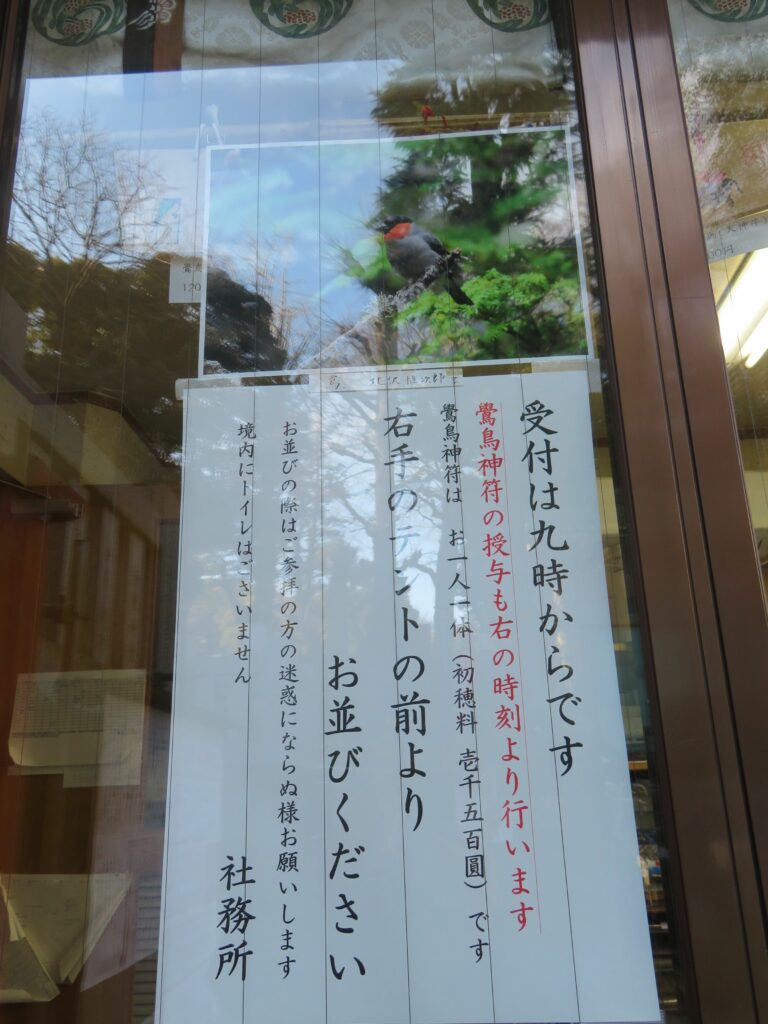 受付は九時からです
鷽鳥神符の授与も右の時刻より行います
鷽鳥神符は お一人一体(初穂料 壱千五百圓)です
右手のテントの前より
お並びください
お並びの際はご参拝の方の迷惑にならぬ様お願いします
境内にトイレはございません
社務所
120